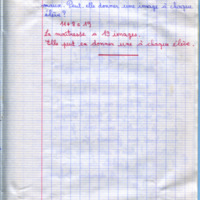 Peut-elle donner une image à chaque
élève ?
La maîtresse a 19 images.
Elle peut en donner une à chaque élève.